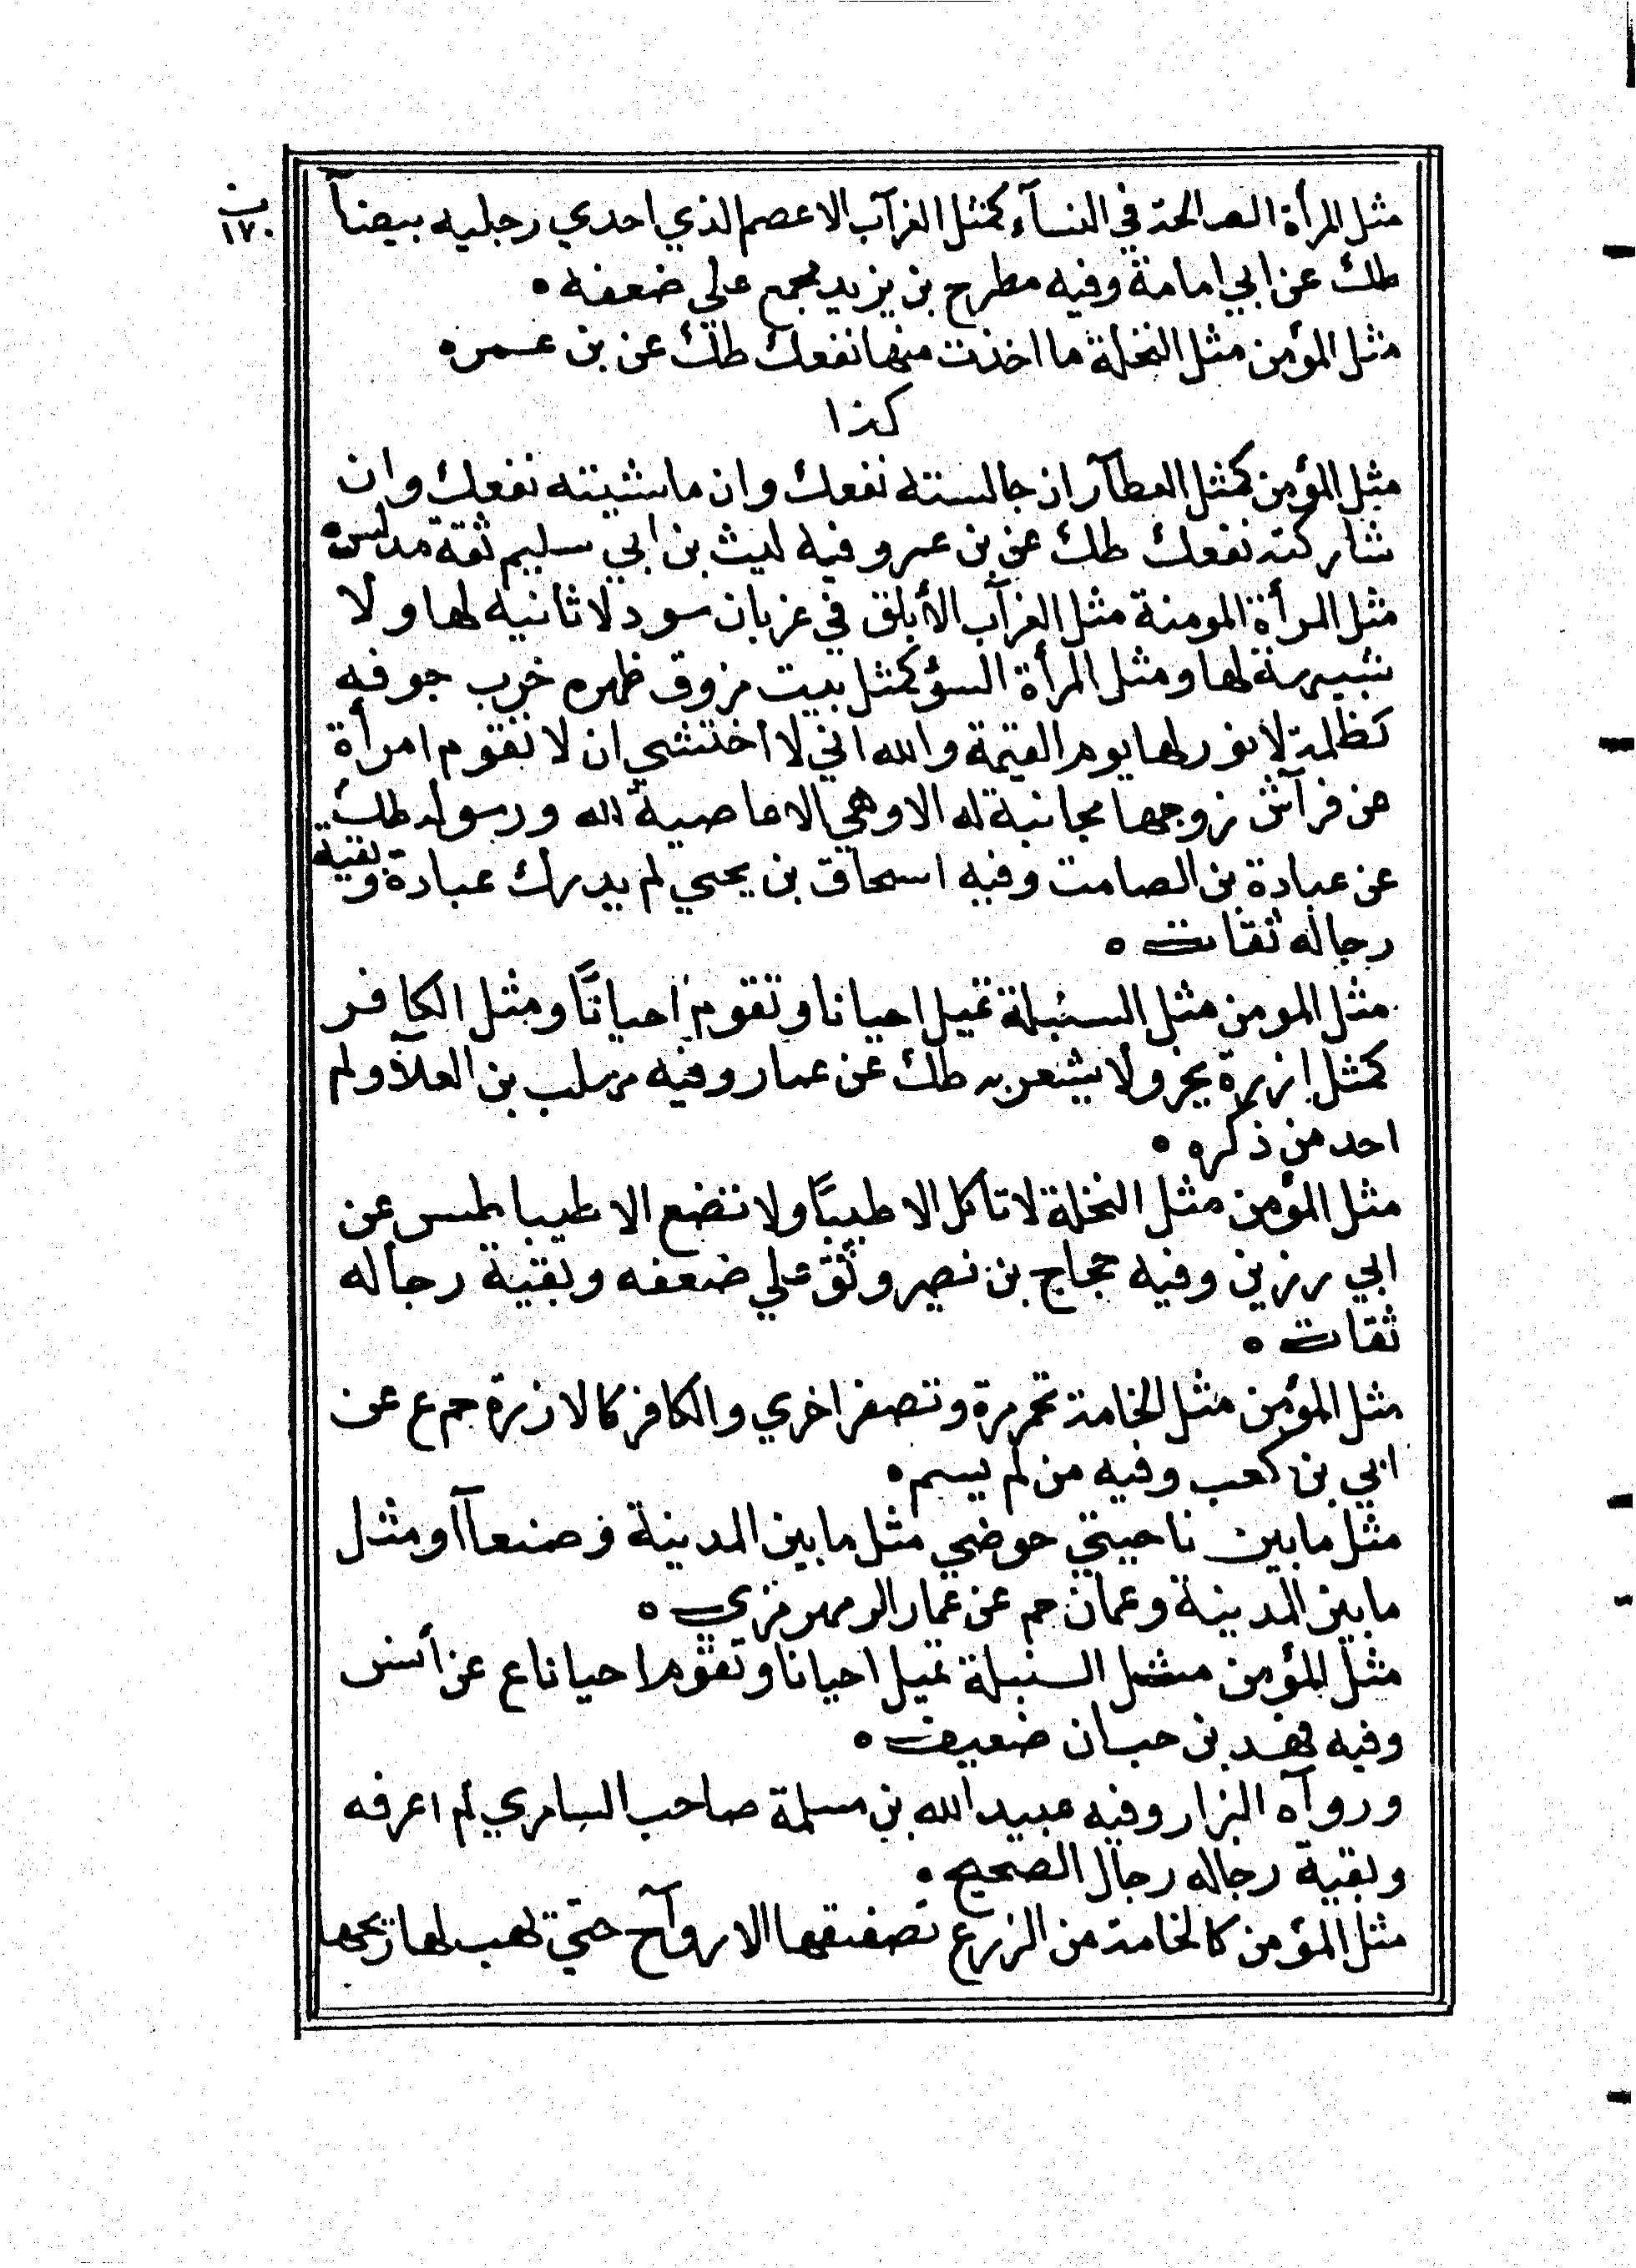 ب
١٧٠
مثل المرأة الصالحة في النسآء كمثل الغرآب الاعصم الذي احدي رجليه بيضآ
طك عن ابي امامة وفيه مطرح بن يزيد مجمع علي ضعفه ه
مثل المؤمن مثل النخلة ما اخذت منها نفعك طك عن بن عمره
كذا
مثل المؤمن كمثل العطآر ان جالسته نفعك وان ماشيته نفعك وان
شاركته نفعك طك عن بن عمر وفيه ليث بن ابي سليم ثقة مدلس ه
مثل المرأة المومنة مثل الغرآب الأبلق في غربان سود لا ثانيه لها ولا
شبيهة لها ومثل المرأة السؤ كمثل بيت مزوق ظهره خرب جوفه
كظلمة لا نور لها يوم القيمة والله اني لا اختشي ان لا تقوم امرأة
من فرآش زوجها مجانبة له الا وهي الا عاصية لله ورسوله طك
عن عبادة بن الصامت وفيه اسحاق بن يحيي لم يدرك عبادة وبقية
رجاله ثقات ه
مثل المومن مثل السنبلة تميل احيانا وتقوم احيانًا ومثل الكافر
كمثل ارزة يخر ولا يشعر به طك عن عمار وفيه مهلب بن العلآ ولم
احد من ذكره ه
مثل المؤمن مثل النخلة لا تاكل الا طيبًا ولا تضع الا طيبا طس عن
ابي رزين وفيه حجاج بن نصير وثق علي ضعفه وبقية رجاله
ثقات ه
مثل المؤمن مثل الخامة تحمر مرة وتصفر اخري والكافر كالارزة حم ع عن
ابي بن كعب وفيه من لم يسم ه
مثل ما بين ناحيتي حوضي مثل ما بين المدينة وصنعآ او مثل
ما بين المدينة وعمان حم عن عمار الرمهرمزي ه
مثل المؤمن مثل السنبلة تميل احيانا وتقوم احيانا ع عن أنس
وفيه فهد بن حبان ضعيف ه
وروآه البزار وفيه عبيد الله بن مسلمة صاحب السامري لم اعرفه
وبقية رجاله رجال الصحيح ه
مثل المؤمن كالخامة من الزرع تصفقها الاروآح حتي تهب لها ريحها